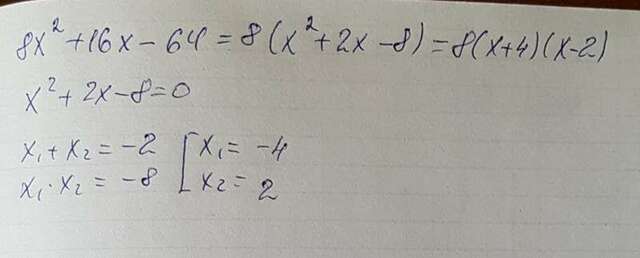 8x² + 16x - 64 = 8(x² + 2x - 8) = 8(x+4)(x-2)
x² + 2x - 8 = 0
x₁ + x₂ = -2 [ x₁ = -4
x₁ · x₂ = -8 [ x₂ = 2